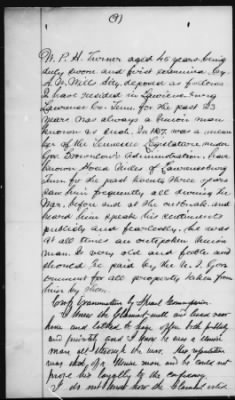 (9)
W. P. H. Turner aged 45 years being
duly sworn and first examined by
A. W. Mills Atty, deposes as follows
I have resided in Lawrenceburg
Lawrence Co. Tenn. for the past 23
years was always a Union man
known as such. In 1867, was a mem-
ber of the Tennessee Legislature under
Gov Brownlow's Administration, have
known of Lawrenceburg
Tenn for the past twenty three years
saw him frequently all during the
War, before and at the outbreak and
heard him speak his sentiments
publicly and fearlessly. He was
at all times an outspoken Union
man. Is very old and feeble and
should be paid by the U. S. Gov
ernment for all property taken from
him by them.
Cross Examination by Special Commissioner.
I knew the Claimant well and lived near
him and talked to him often both publicly
and privately and I know he was a Union
man all through the war. His reputation
was that of a Union man and he could not
prove his loyalty to the confederacy.
I do not know how the Claimant voted.